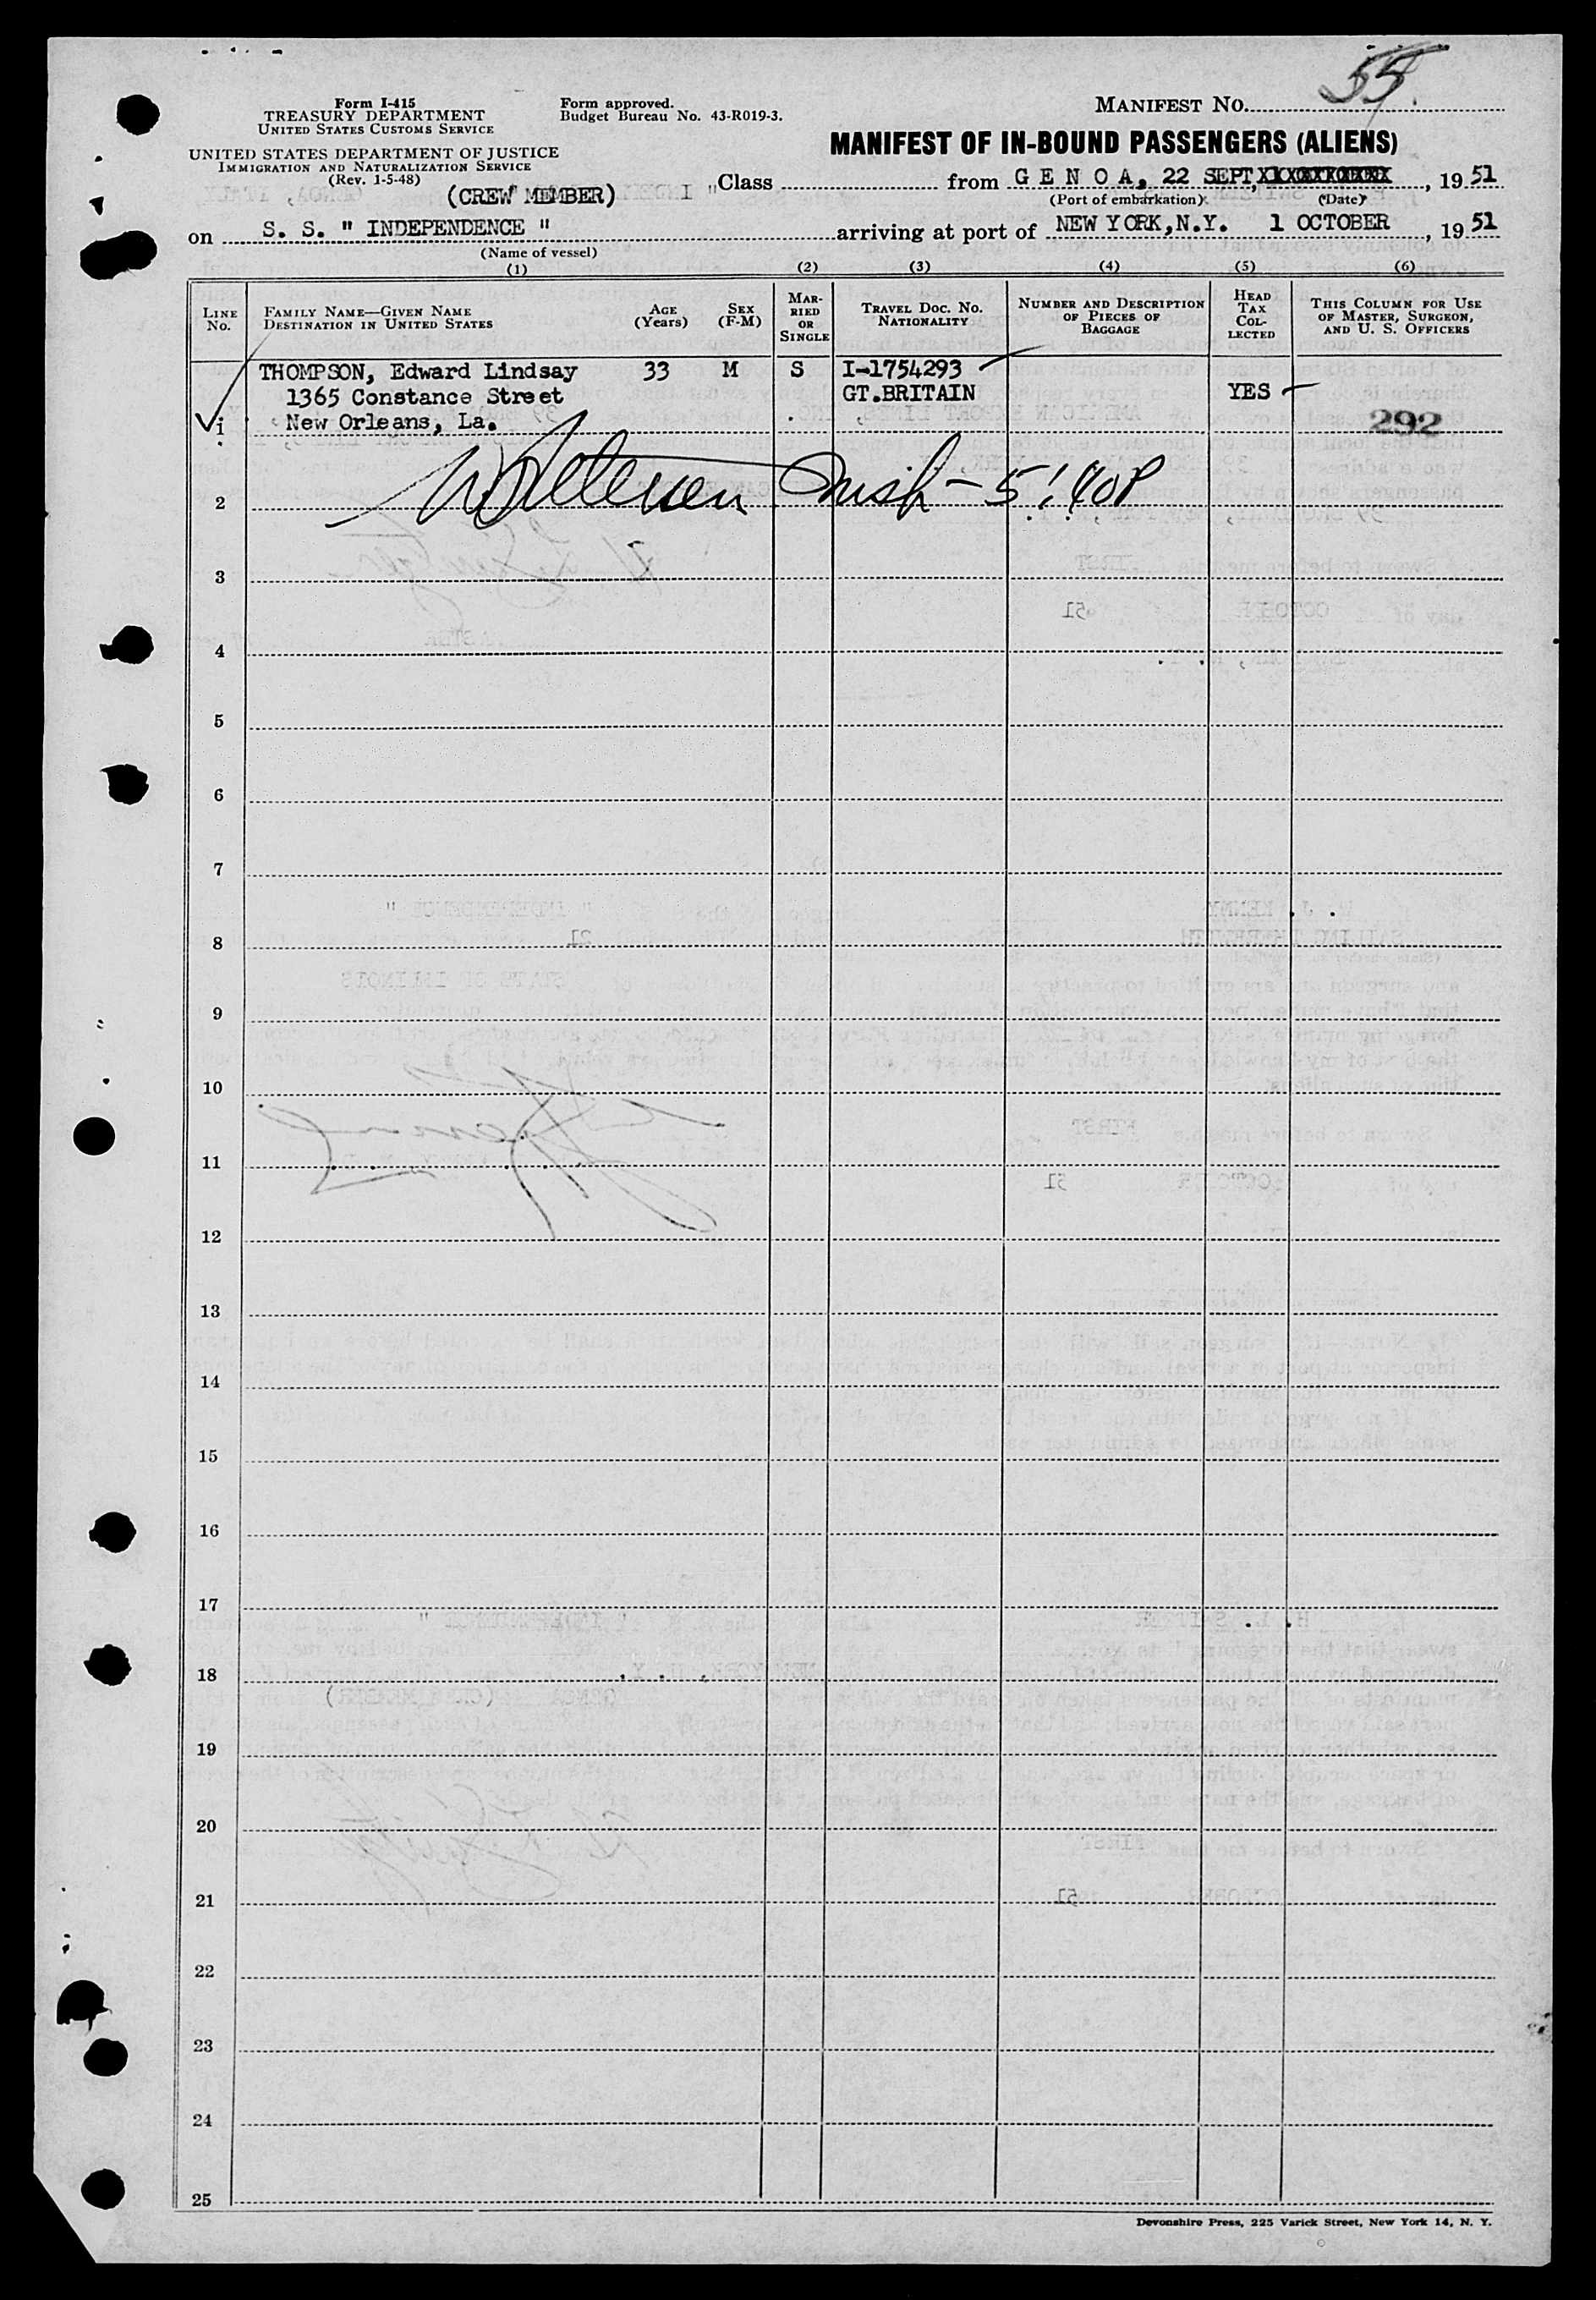 55
Form I-415
TREASURY DEPARTMENT
UNITED STATES CUSTOMS SERVICE
Form approved.
Budget Bureau No. 43-R019-3.
MANIFEST No.
UNITED STATES DEPARTMENT OF JUSTICE
IMMIGRATION AND NATURALIZATION SERVICE
(Rev. 1-5-48)
MANIFEST OF IN-BOUND PASSENGERS (ALIENS)
(CREW MEMBER) Class from G E N O A, 22 SEPT, 1951
(Port of embarkation) (Date)
on S. S. " INDEPENDENCE " arriving at port of NEW YORK,N.Y. 1 OCTOBER, 1951
(Name of vessel)
(1) (2) (3) (4) (5) (6)
LINE No.
FAMILY NAME—GIVEN NAME
DESTINATION IN UNITED STATES
AGE (Years)
SEX (F-M)
MARRIED OR SINGLE
TRAVEL DOC. No.
NATIONALITY
NUMBER AND DESCRIPTION OF PIECES OF BAGGAGE
HEAD TAX COLLECTED
THIS COLUMN FOR USE OF MASTER, SURGEON, AND U. S. OFFICERS
THOMPSON, Edward Lindsay 33 M S I-1754293
1365 Constance Street GT.BRITAIN YES
1 New Orleans, La. 292
2 5:40P
3
4
5
6
7
8
9
10
11
12
13
14
15
16
17
18
19
20
21
22
23
24
25
Devonshire Press, 225 Varick Street, New York 14, N. Y.